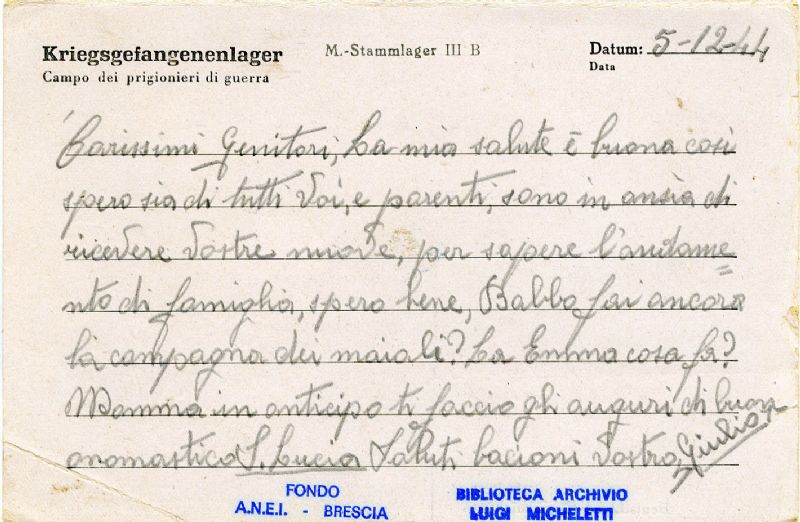 Kriegsgefangenenlager
Campo dei prigionieri di guerra
M.-Stammlager III B
Datum: 5-12-44
Data
Carissimi Genitori, La mia salute è buona così
spero sia di tutti Voi, e parenti, sono in ansia di
ricevere Vostre nuove, per sapere l'andame=
nto di famiglia, spero bene, Babbo fai ancora
la campagna dei maiali? La Emma cosa fa?
Mamma in anticipo ti faccio gli auguri di buon
onomastico S. Lucia Saluti bacioni Vostro Giulio
FONDO
A.N.E.I. - BRESCIA
BIBLIOTECA ARCHIVIO
LUIGI MICHELETTI